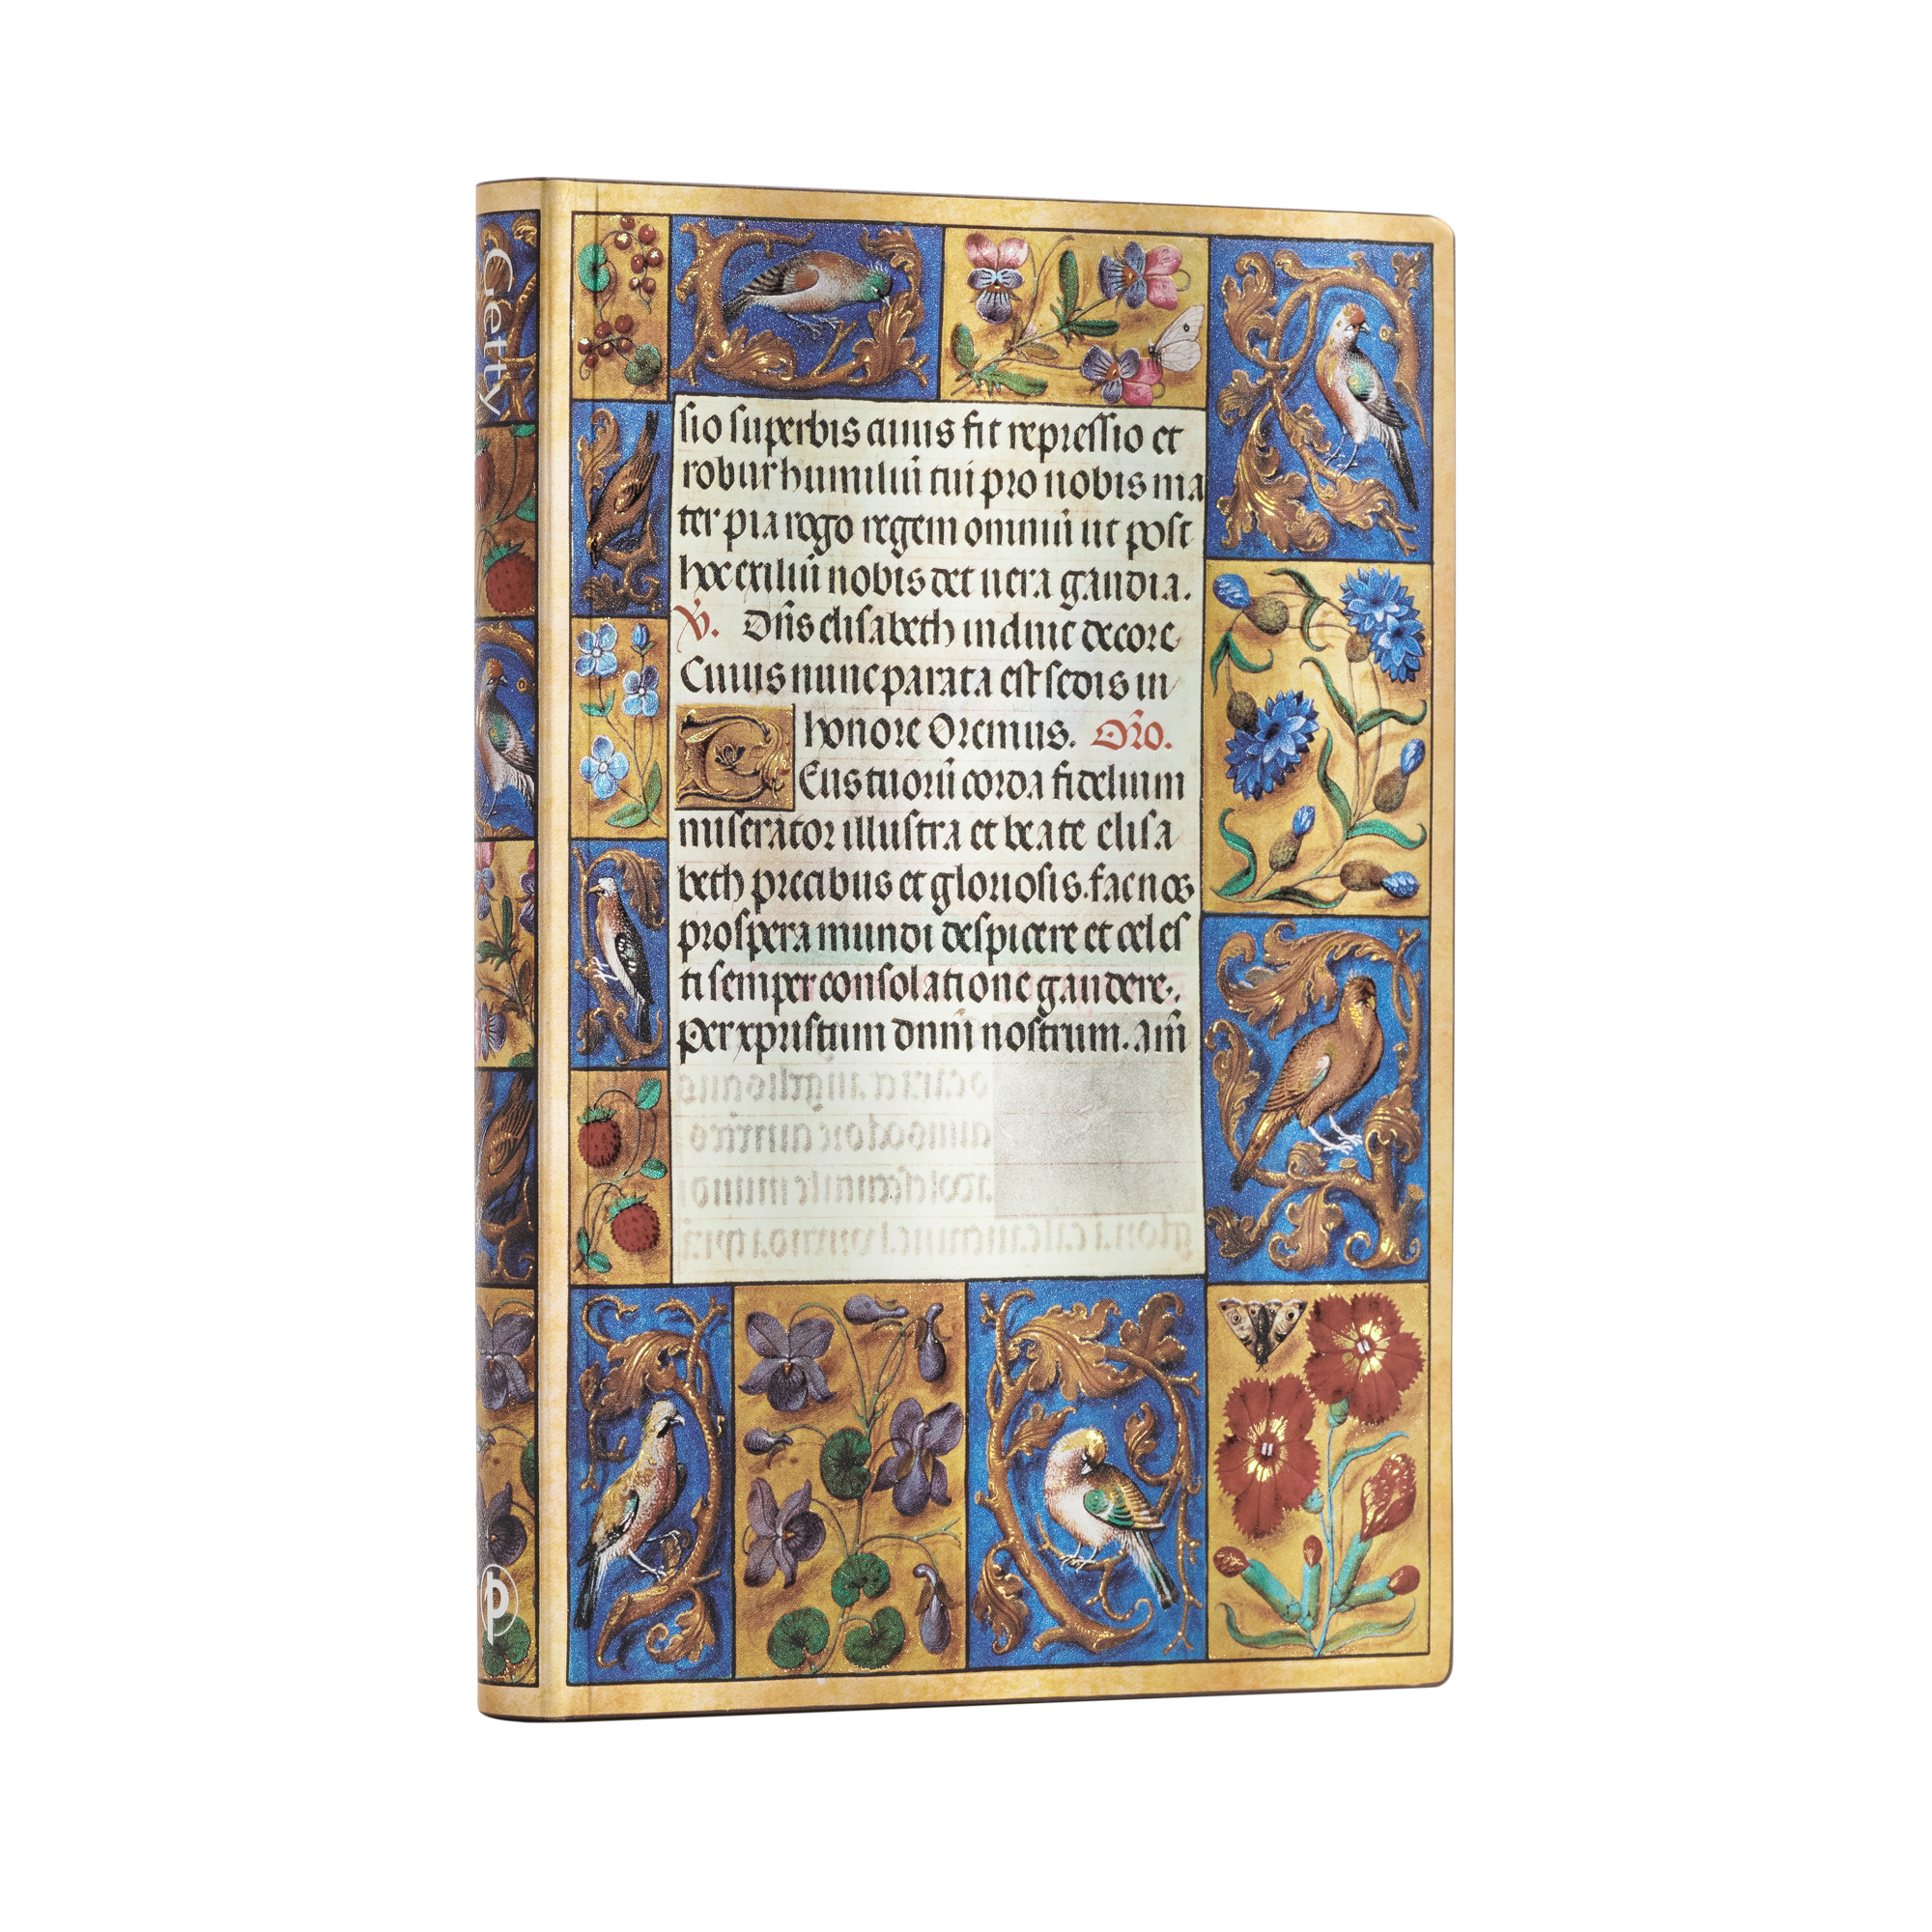 Getty
sio superbis cuius fit repressio et
robur humiliū tui pro nobis ma
ter pia rogo regem omniū ut post
hoc exiliū nobis det uera gaudia.
V. Dn̄s elisabeth induit decore
Cuius nunc parata est sedis in
honore Oremus. Or̄o.
DEus tuorū corda fidelium
miserator illustra et beate elisa
beth precibus et gloriosis. fac nos
prospera mundi despicere et celes
ti semper consolatione gaudere.
Per xpristum dnm̄ nostrum. am̄